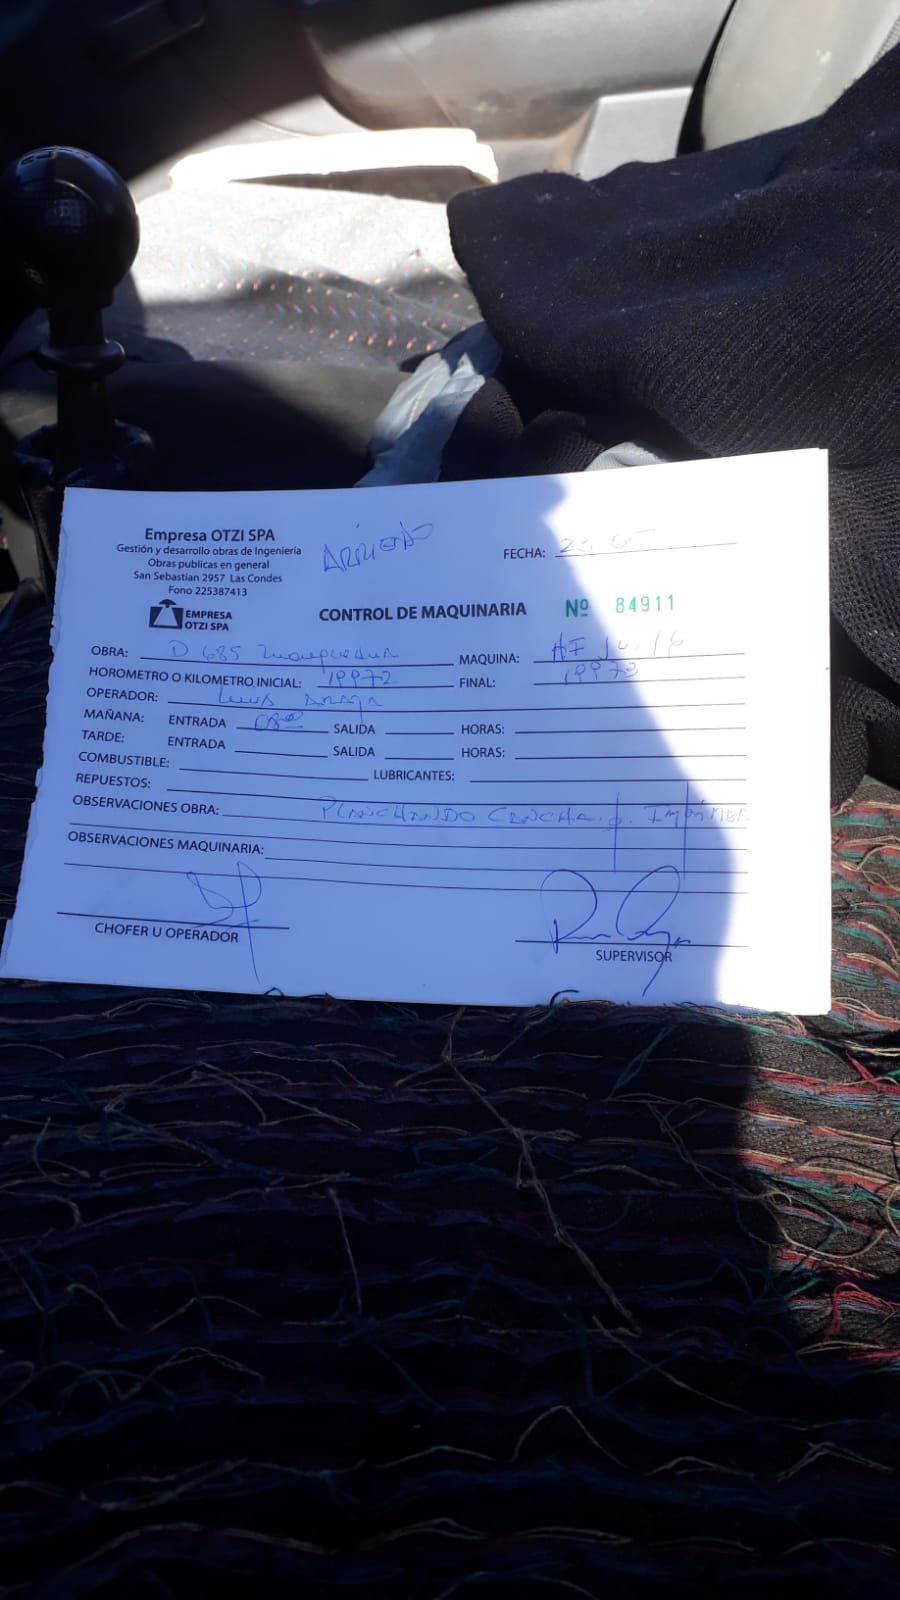 Empresa OTZI SPA
Gestión y desarrollo obras de Ingeniería
Obras publicas en general
San Sebastian 2957 Las Condes
Fono 225387413
EMPRESA
OTZI SPA
ARRIENDO
FECHA: 23 05
CONTROL DE MAQUINARIA Nº 84911
OBRA: D 685 MAQUINA:
HOROMETRO O KILOMETRO INICIAL: 19972 FINAL: 19973
OPERADOR: Luis Araya
MAÑANA: ENTRADA 08:00 SALIDA HORAS:
TARDE: ENTRADA SALIDA HORAS:
COMBUSTIBLE: LUBRICANTES:
REPUESTOS:
OBSERVACIONES OBRA: PLANCHANDO CANCHA p. Imprimar
OBSERVACIONES MAQUINARIA:
CHOFER U OPERADOR
SUPERVISOR